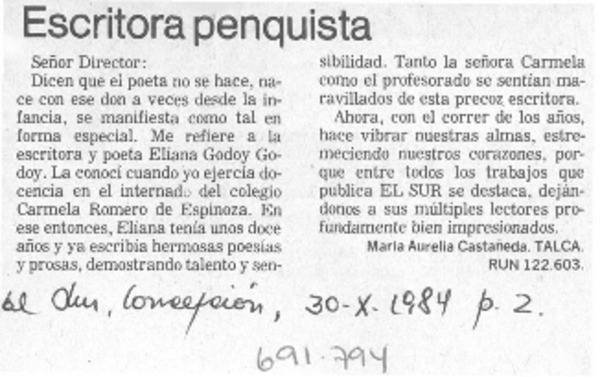 Escritora penquista
Señor Director:
Dicen que el poeta no se hace, na-
ce con ese don a veces desde la in-
fancia, se manifiesta como tal en
forma especial. Me refiere a la
escritora y poeta Eliana Godoy Go-
doy. La conocí cuando yo ejercía do-
cencia en el internado del colegio
Carmela Romero de Espinoza. En
ese entonces, Eliana tenía unos doce
años y ya escribía hermosas poesías
y prosas, demostrando talento y sen-
sibilidad. Tanto la señora Carmela
como el profesorado se sentían ma-
ravillados de esta precoz escritora.
Ahora, con el correr de los años,
hace vibrar nuestras almas, estre-
meciendo nuestros corazones, por-
que entre todos los trabajos que
publica EL SUR se destaca, deján-
donos a sus múltiples lectores pro-
fundamente bien impresionados.
María Aurelia Castañeda. TALCA.
RUN 122.603.
El Sur, Concepción, 30-X-1984 p. 2.
691.794